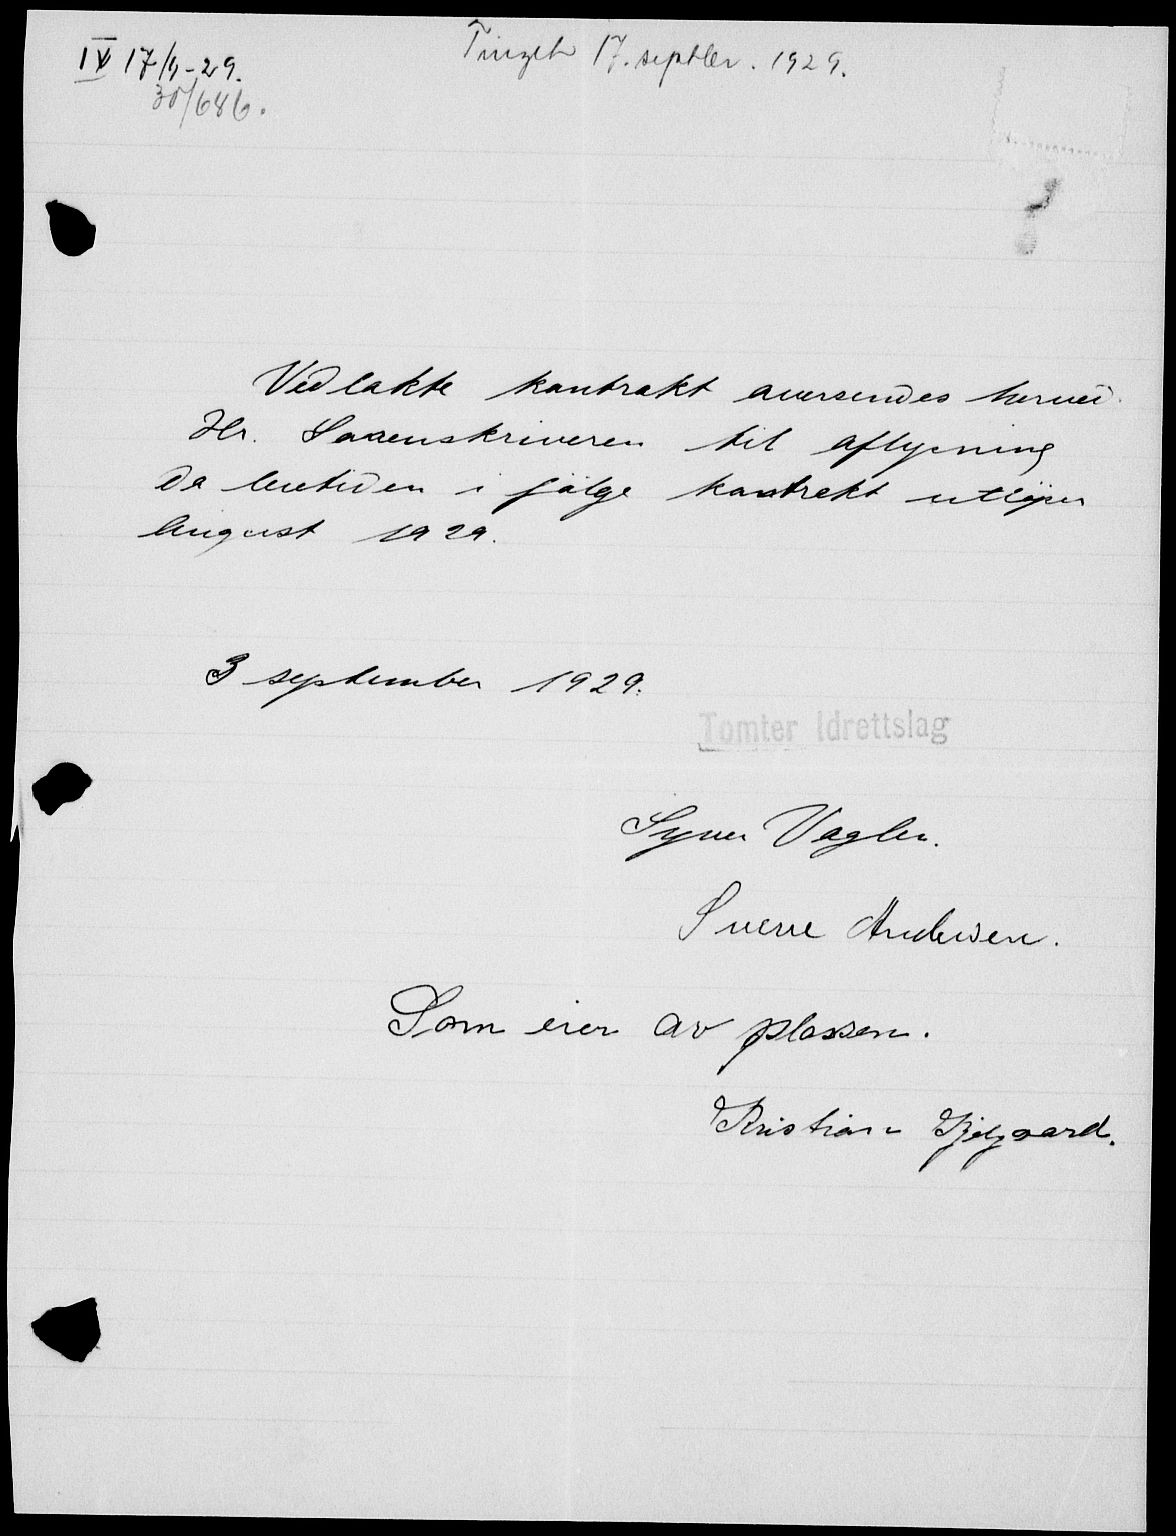 IV 17/9-29.
30/686.
Tinglt 17. septber. 1929.
Vedlakte kontrakt oversendes herved
Hr. Sorenskriveren til aflysning
da leietiden i følge kontrakt utløper
August 1929.
3 september 1929.
Tomter Idrettslag
Syver Vagler.
Sverre Andersen.
Som eier av plassen.
Kristian